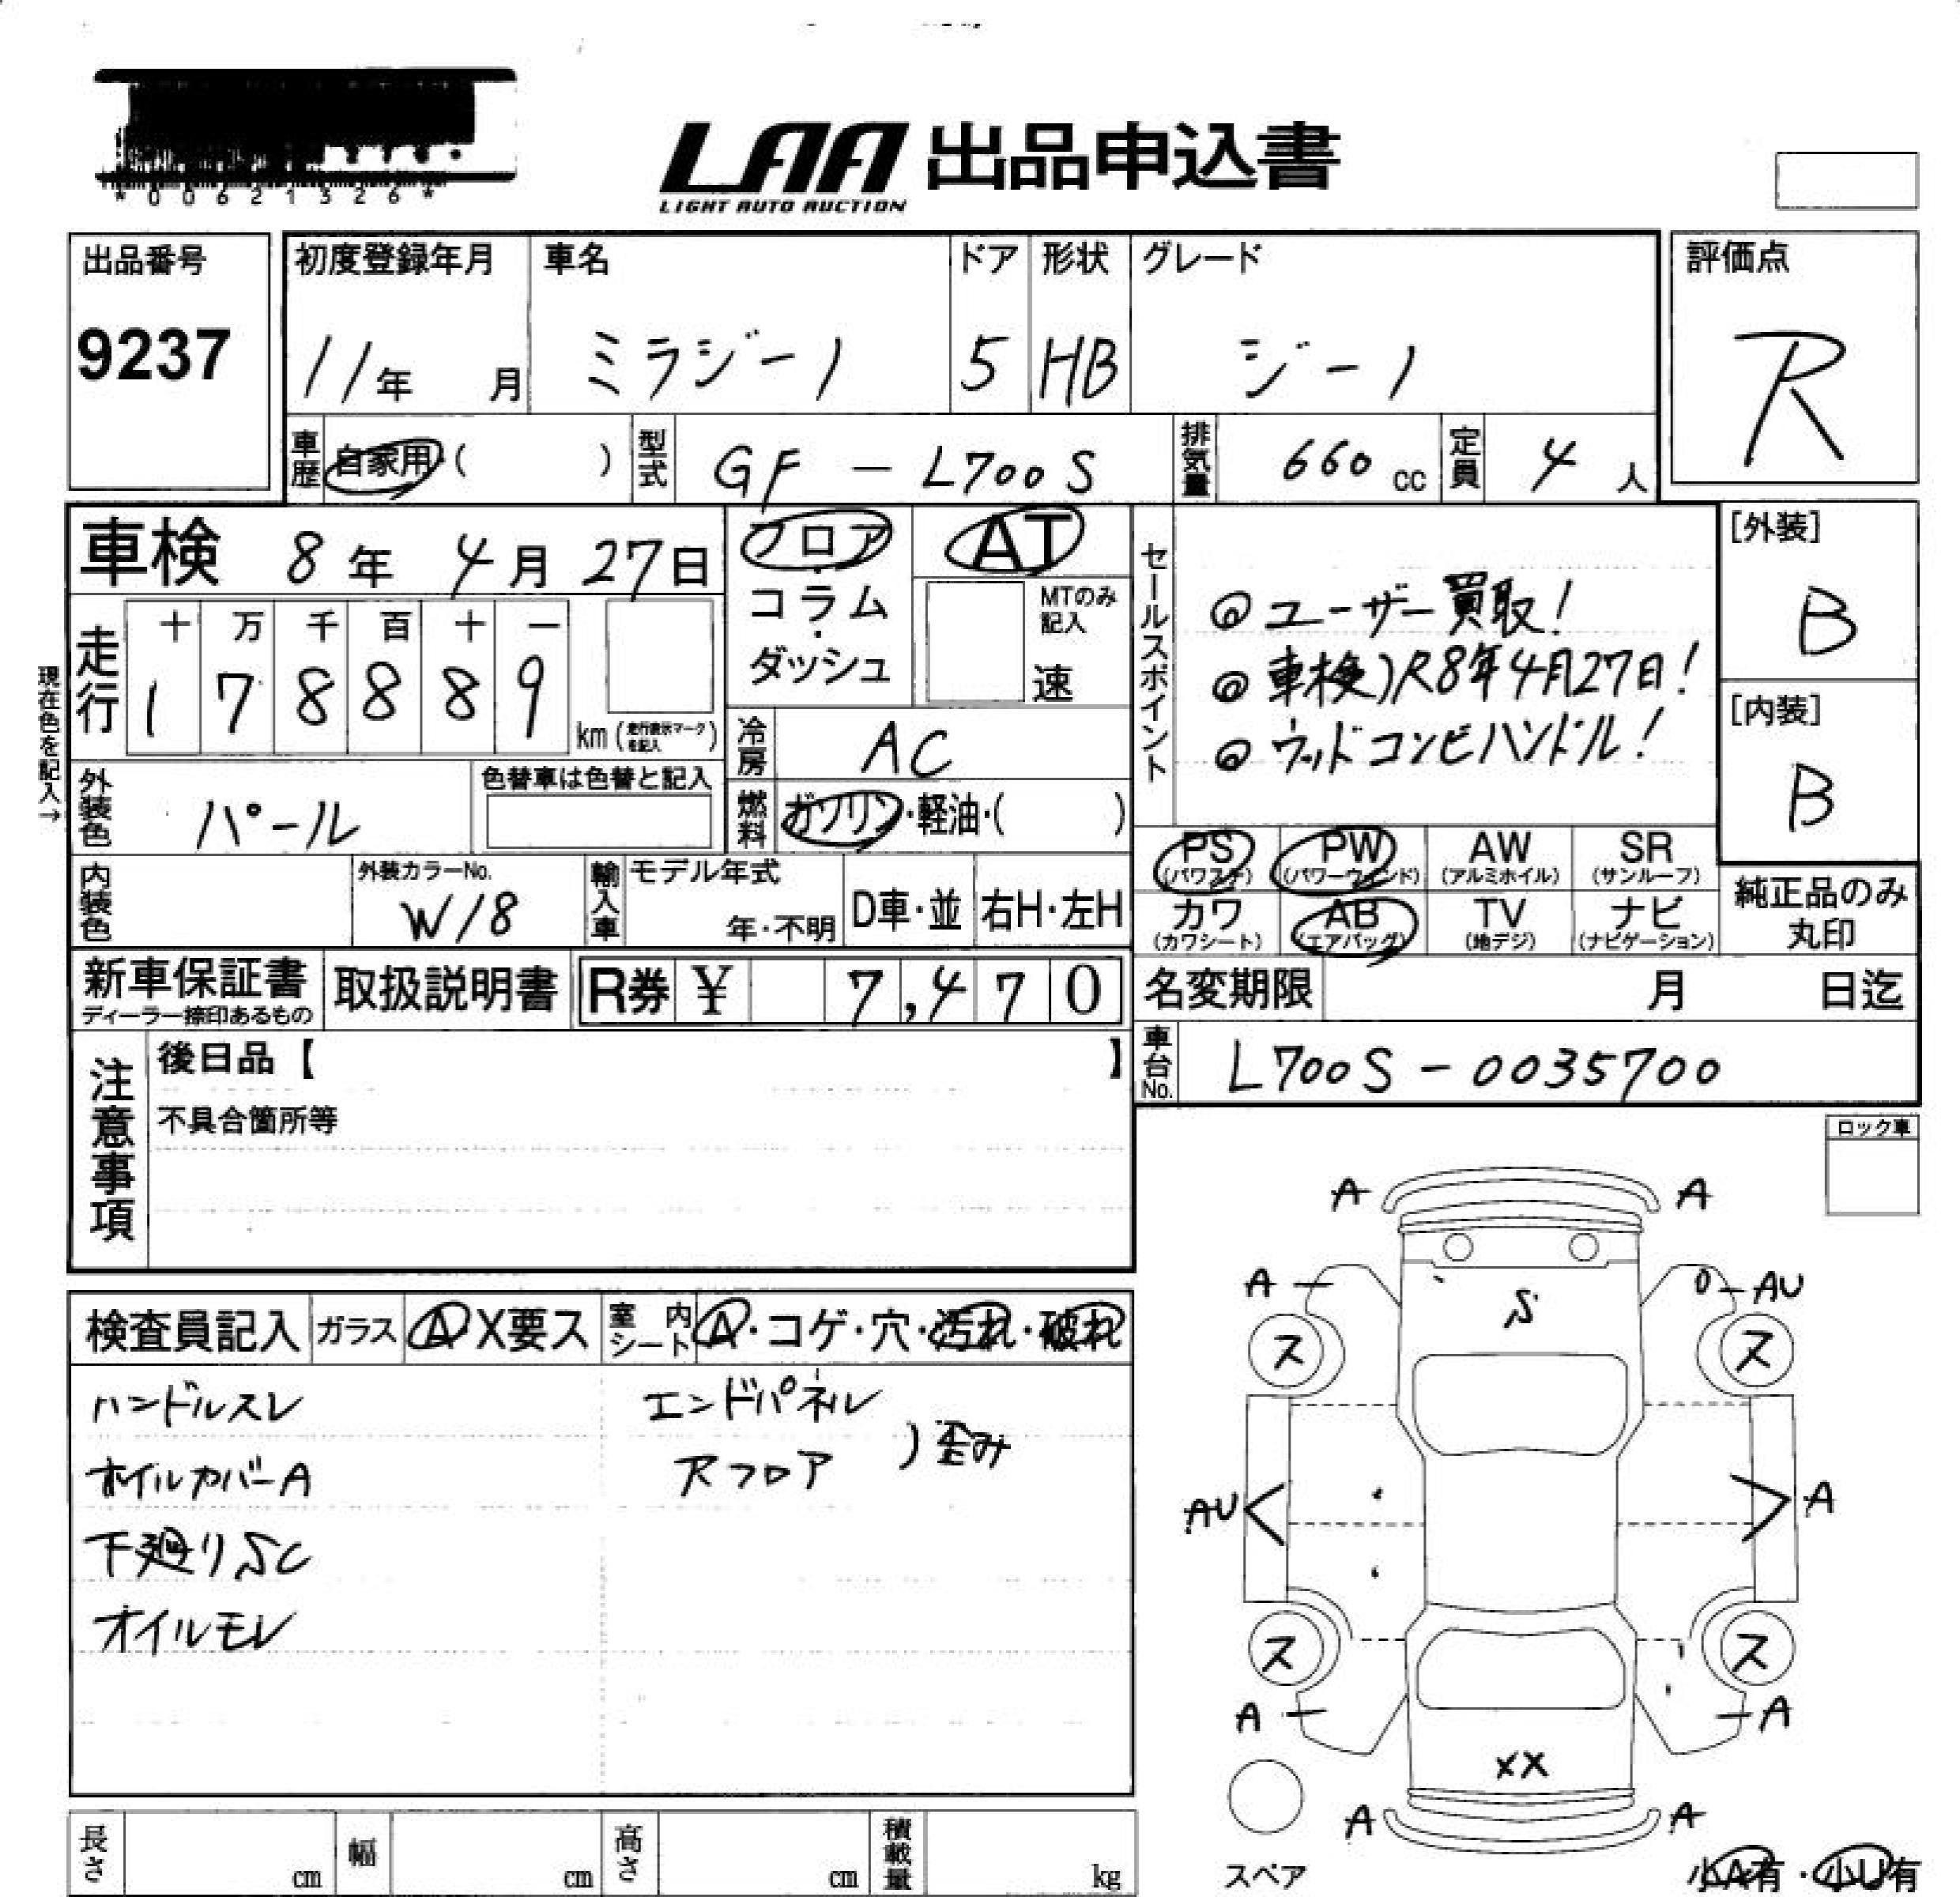 *00621326*
LAA 出品申込書
LIGHT AUTO AUCTION
出品番号 9237
初度登録年月 11年 月
車名 ミラジーノ
ドア 5
形状 HB
グレード ジーノ
評価点 R
車歴 自家用・( )
型式 GF - L700S
排気量 660 cc
定員 4 人
車検 8年 4月 27日
フロア・コラム・ダッシュ
AT
MTのみ記入 速
セールスポイント
◎ユーザー買取!
◎車検)R8年4月27日!
◎ウッドコンビハンドル!
[外装] B
[内装] B
現在色を記入→
走行 十万千百十一
178889 km (走行表示マークを記入)
冷房 AC
外装色 パール
色替車は色替と記入
燃料 ガソリン・軽油・( )
PS (パワステ) PW (パワーウィンド) AW (アルミホイル) SR (サンルーフ)
カワ (カワシート) AB (エアバッグ) TV (地デジ) ナビ (ナビゲーション)
純正品のみ丸印
内装色
外装カラーNo. W18
輸入車 モデル年式 年・不明 D車・並 右H・左H
新車保証書 ディーラー捺印あるもの
取扱説明書
R券 ¥ 7,470
名変期限 月 日迄
車台No. L700S-0035700
注意事項
後日品【 】
不具合箇所等
ロック車
検査員記入 ガラス A X要ス 室内シート A・コゲ・穴・汚れ・破れ
ハンドルスレ
ホイルカバーA
下廻りSC
オイルモレ
エンドパネル
Rフロア )歪み
A A
A S AU
ス ス
AU A
ス ス
A A
XX
A A
スペア
小A有・小U有
長さ cm 幅 cm 高さ cm 積載量 kg